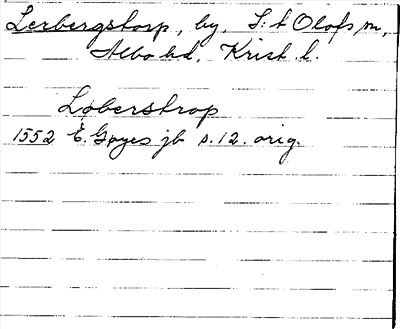 Lerbergstorp, by, S:t Olofs sn,
Albo hd, Krist. l.
Løberstrop
1552 E. Gøyes jb s. 12. orig.